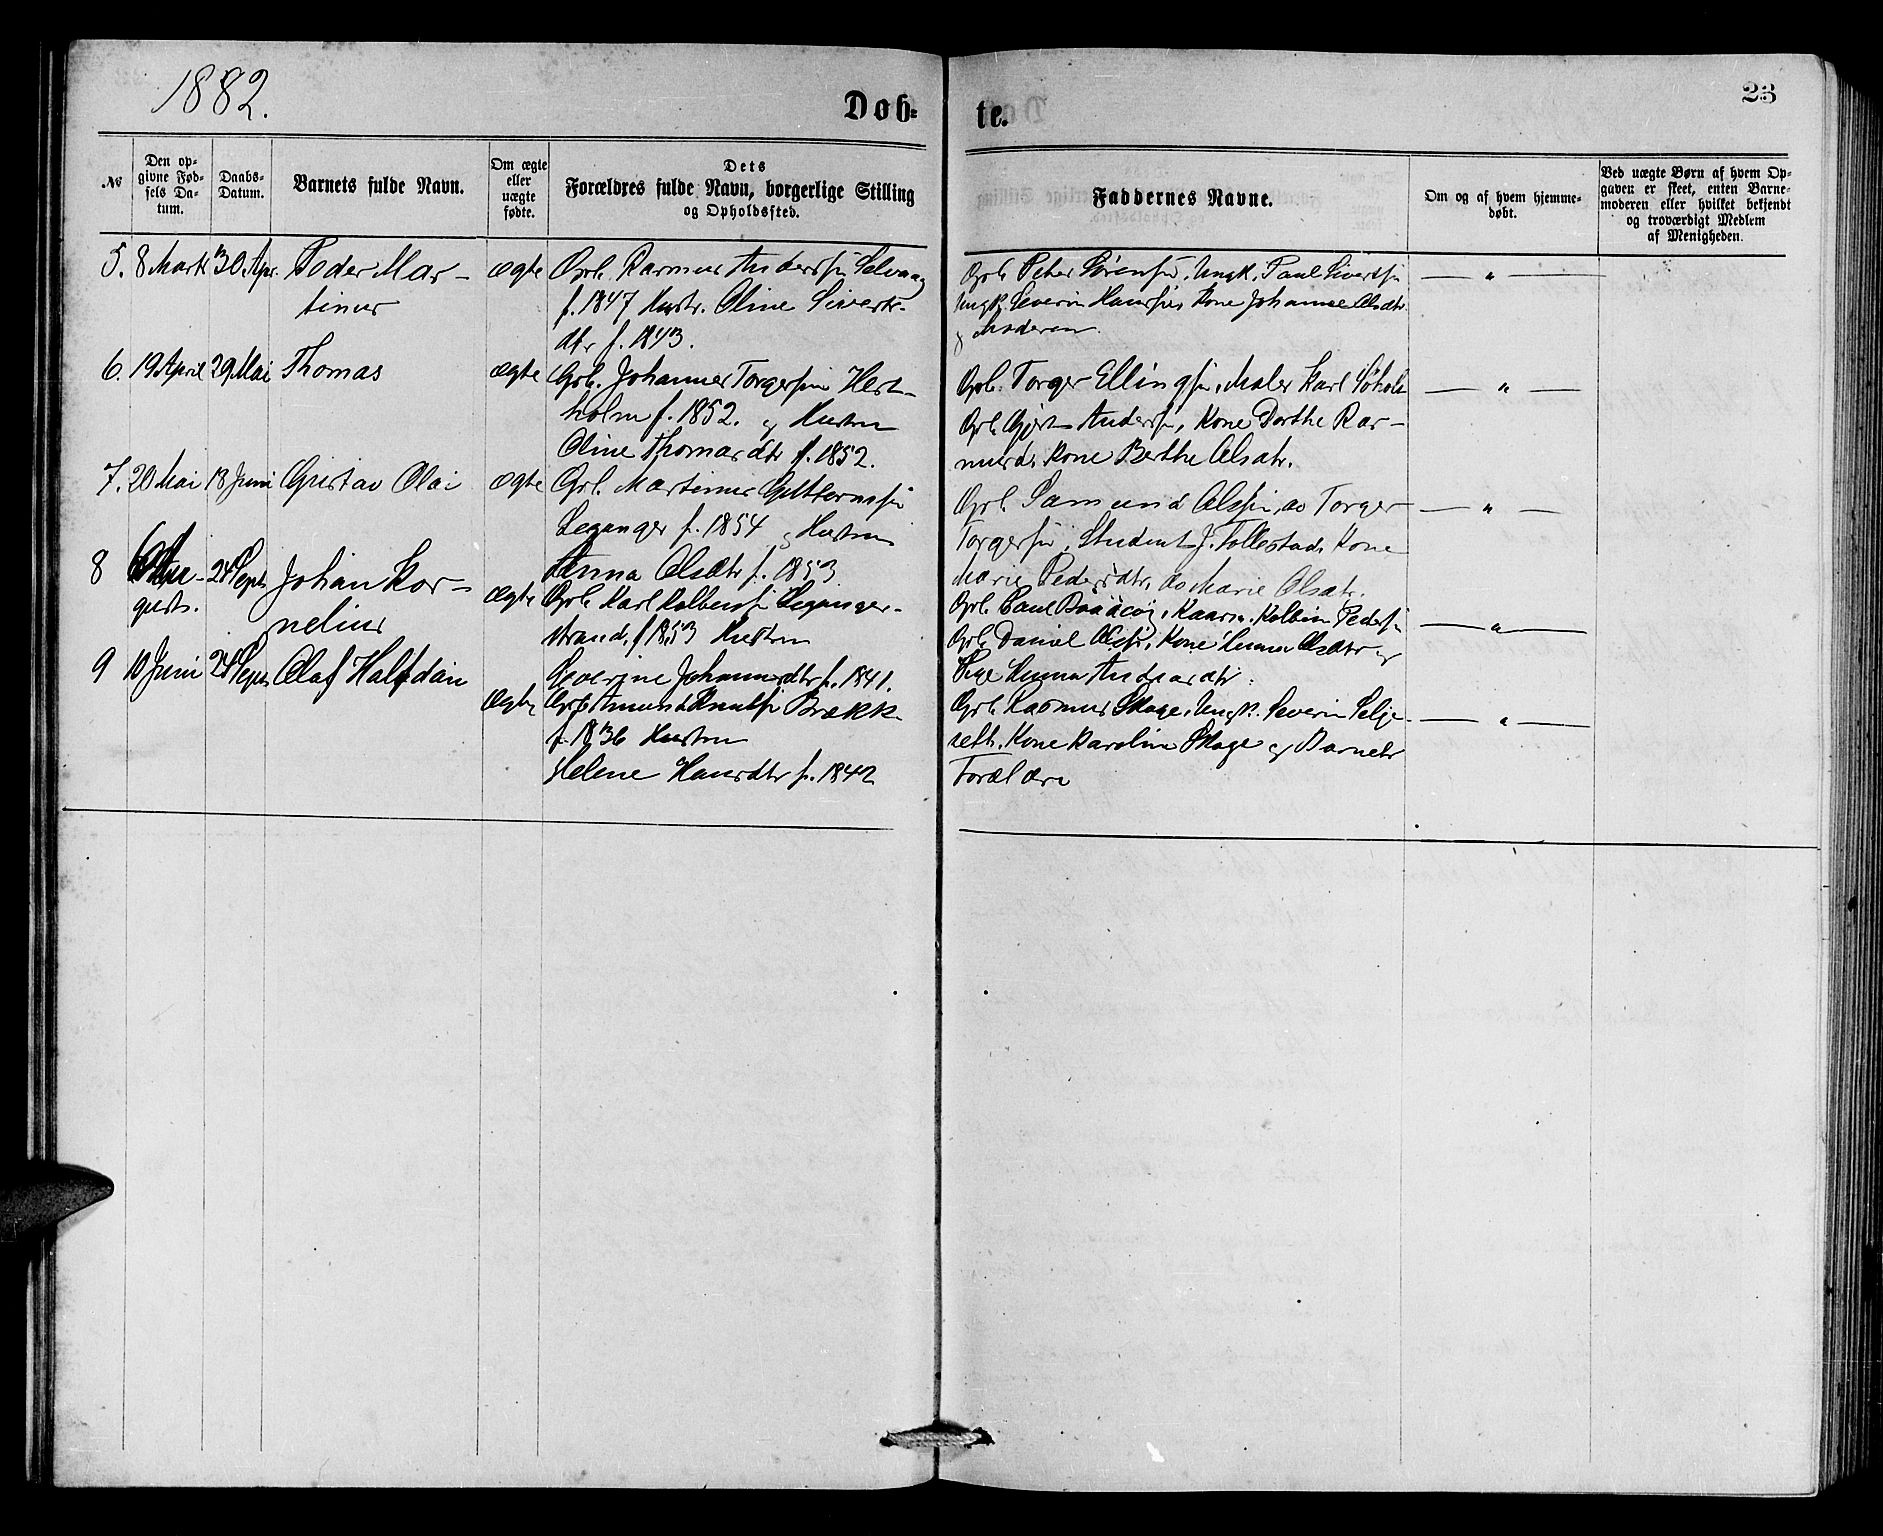 1882.
Døb-
te.
23
№
Den op-
givne Fød-
sels Da-
tum.
Daabs-
Datum.
Barnets fulde Navn.
Om ægte
eller
uægte
fødte.
Dets
Forældres fulde Navn, borgerlige Stilling
og Opholdssted.
Faddernes Navne.
Om og af hvem hjemme-
døbt.
Ved uægte Børn af hvem Op-
gaven er skeet, enten Barne-
moderen eller hvilket bekjendt
og troværdigt Medlem
af Menigheden.
5. 8 Marts 30 Apr. Peder Mar-
tinus
ægte
Grb. Rasmus Anderssøn Selvaag
f. 1847 Hustr. Oline Siverts-
dtr f. 1843.
Grb. Peter Sørensøn, Ungk. Paul Sivertsøn
Ungk. Severin Hanssøn, Kone Johanne Olsdtr
og Moderen.
— " —
6. 19 April 29 Mai Thomas
ægte
Grb. Johannes Torgersøn Hest-
holm f. 1852. og Hustru
Oline Thomasdtr f. 1852.
Grb. Torger Ellingsøn, Maler Karl Søholt
Grb. Gjert Anderssøn, Kone Dorthe Ras-
musd. Kone Berthe Olsdtr.
— " —
7. 20 Mai 18 Juni Gustav Olai
ægte
Grb. Martinus Guttormssøn
Leganger f. 1854 og Hustru
Anna Olsdtr f. 1853
Grb. Samund Olssøn, do Torger
Torgersøn, Student J. Tollestad, Kone
Marie Pedersdtr, do Marie Olsdtr.
— " —
8 6 Au-
gust. 24 Sept. Johan Kor-
nelius
ægte
Grb. Karl Kolbenss Leganger-
strand, f 1853 Hustru
Severine Johannesdtr f. 1841.
Grb. Kolbein Pedersøn
Grb. Daniel Olssøn, Kone Olsdtr og
Pige Andreasdtr.
— " —
9 10 Juni 24 Sept Olaf Halfdan
ægte
Grb Amund Knutsøn Brække
f. 1836 Hustru
Helene Hansdtr f. 1842
Grb. Rasmus Skage, Ungk. Severin Selje-
seth, Kone Karoline Skage og Barnets
Forældre
— " —